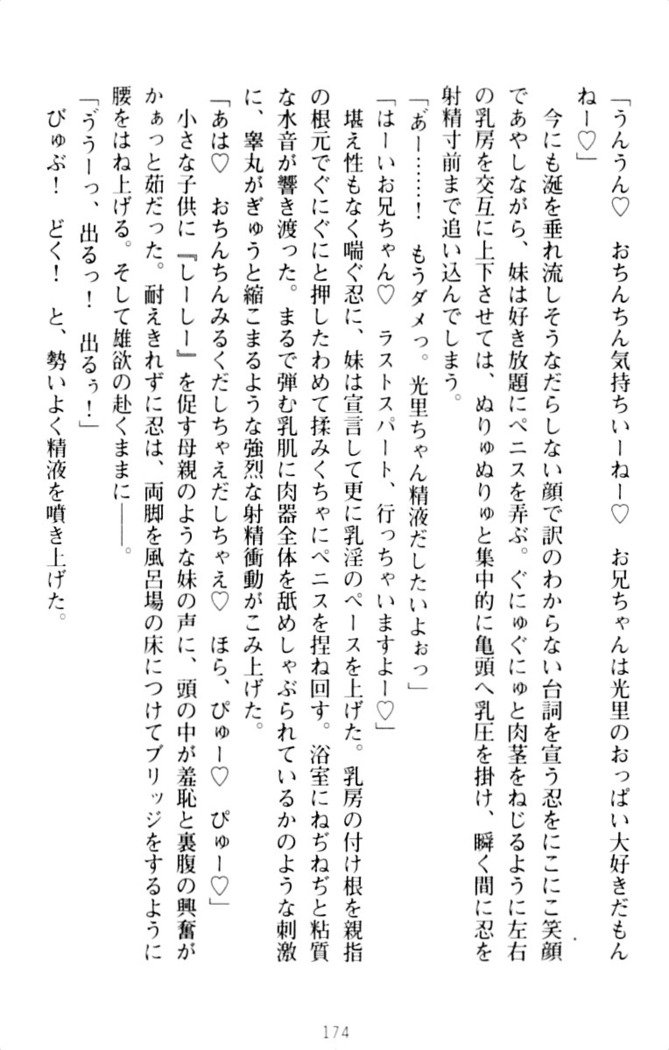 「うんうん♡　おちんちん気持ちいーねー♡　お兄ちゃんは光里のおっぱい大好きだもん
ねー♡」
今にも涎を垂れ流しそうなだらしない顔で訳のわからない台詞を宣う忍をにこにこ笑顔
であやしながら、妹は好き放題にペニスを弄ぶ。ぐにゅぐにゅと肉茎をねじるように左右
の乳房を交互に上下させては、ぬりゅぬりゅと集中的に亀頭へ乳圧を掛け、瞬く間に忍を
射精寸前まで追い込んでしまう。
「あ゛ー……！　もうダメっ。光里ちゃん精液だしたいよぉっ」
「はーいお兄ちゃん♡　ラストスパート、行っちゃいますよー♡」
堪え性もなく喘ぐ忍に、妹は宣言して更に乳淫のペースを上げた。乳房の付け根を親指
の根元でぐにぐにと押したわめて揉みくちゃにペニスを捏ね回す。浴室にねぢねぢと粘質
な水音が響き渡った。まるで弾む乳肌に肉器全体を舐めしゃぶられているかのような刺激
に、睾丸がぎゅうと縮こまるような強烈な射精衝動がこみ上げた。
「あは♡　おちんちんみるくだしちゃえだしちゃえ♡　ほら、ぴゅー♡　ぴゅー♡」
小さな子供に『しーしー』を促す母親のような妹の声に、頭の中が羞恥と裏腹の興奮が
かぁっと茹だった。耐えきれずに忍は、両脚を風呂場の床につけてブリッジをするように
腰をはね上げる。そして雄欲の赴くままに――。
「ゔうーっ、出るっ！　出るぅ！」
びゅぶ！　どく！　と、勢いよく精液を噴き上げた。
174